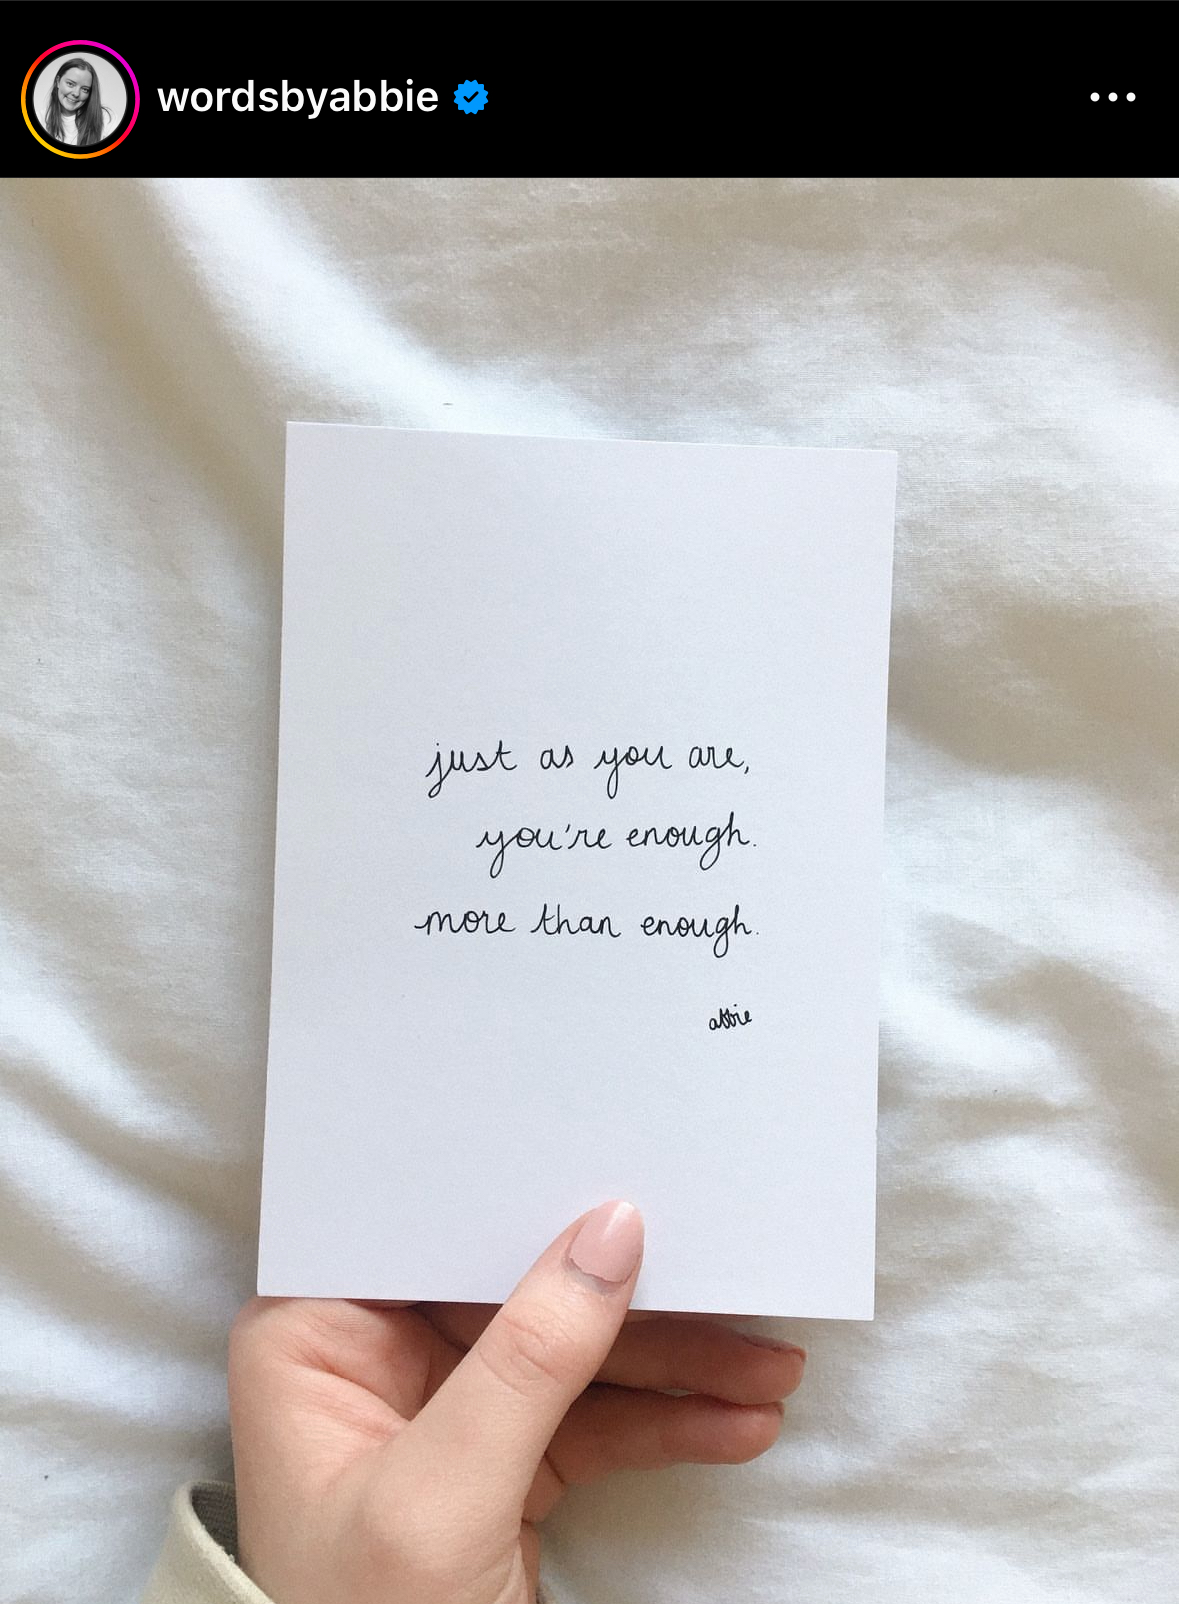 wordsbyabbie
just as you are,
you're enough.
more than enough.
abbie